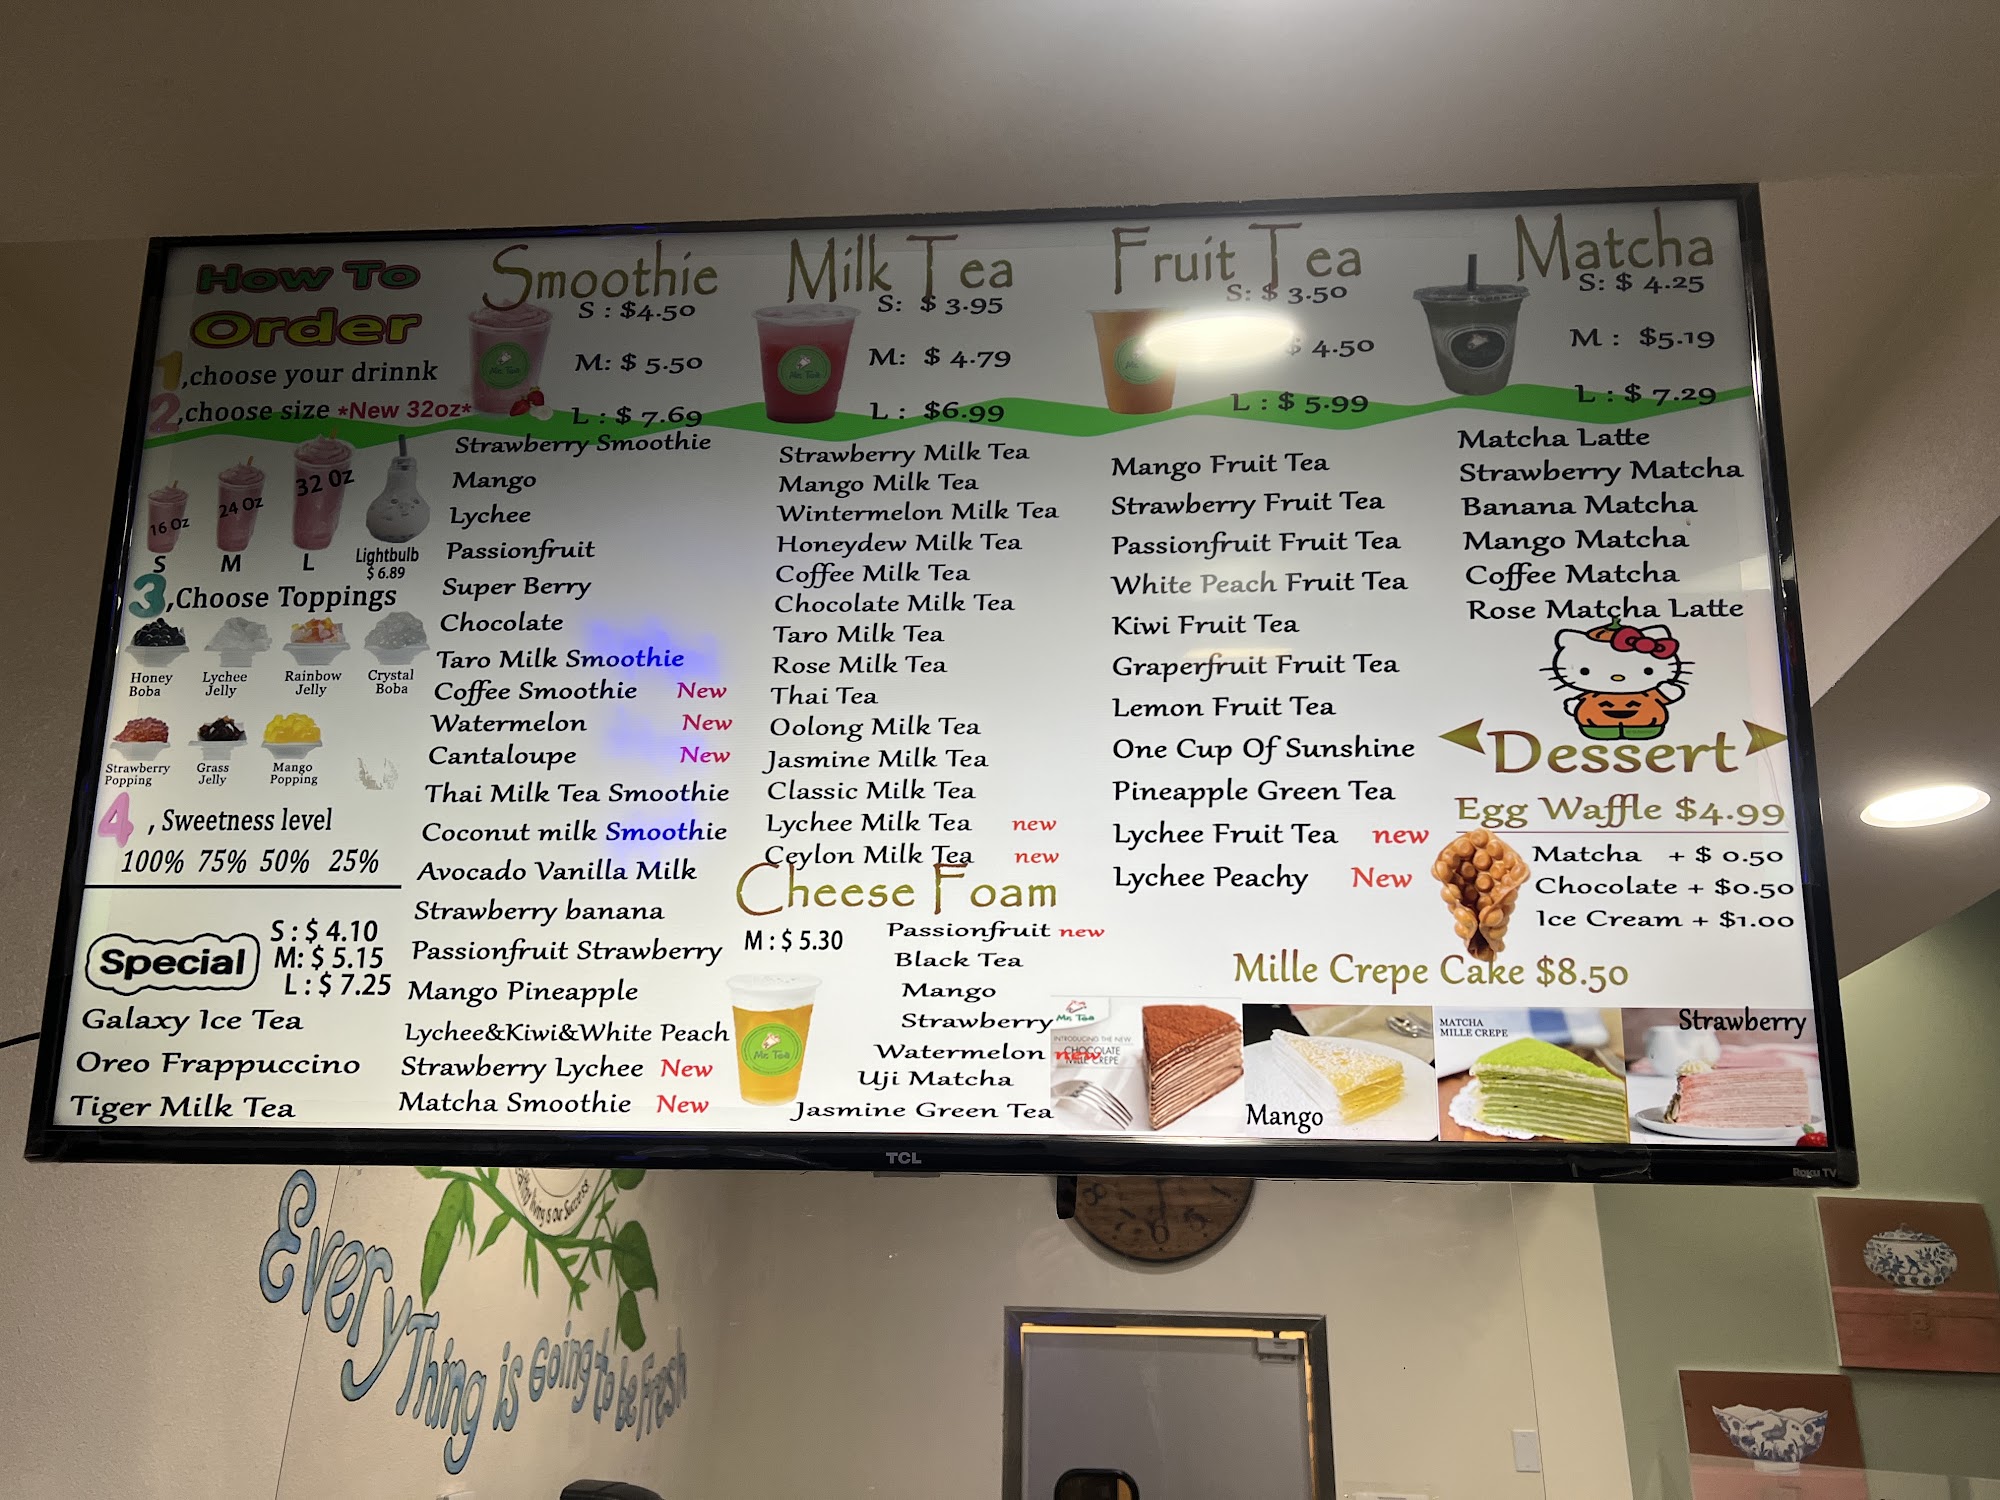 How To
Order
1,choose your drinnk
2,choose size *New 32oz*
16 Oz
24 Oz
32 Oz
S
M
L
Lightbulb
$ 6.89
3,Choose Toppings
Honey
Boba
Lychee
Jelly
Rainbow
Jelly
Crystal
Boba
Strawberry
Popping
Grass
Jelly
Mango
Popping
4 , Sweetness level
100% 75% 50% 25%
Special
S : $ 4.10
M: $ 5.15
L : $ 7.25
Galaxy Ice Tea
Oreo Frappuccino
Tiger Milk Tea
Smoothie
S : $4.50
M: $ 5.50
L : $ 7.69
Mr. Tea
Strawberry Smoothie
Mango
Lychee
Passionfruit
Super Berry
Chocolate
Taro Milk Smoothie
Coffee Smoothie New
Watermelon New
Cantaloupe New
Thai Milk Tea Smoothie
Coconut milk Smoothie
Avocado Vanilla Milk
Strawberry banana
Passionfruit Strawberry
Mango Pineapple
Lychee&Kiwi&White Peach
Strawberry Lychee New
Matcha Smoothie New
Milk Tea
S: $ 3.95
M: $ 4.79
L : $6.99
Mr. Tea
Strawberry Milk Tea
Mango Milk Tea
Wintermelon Milk Tea
Honeydew Milk Tea
Coffee Milk Tea
Chocolate Milk Tea
Taro Milk Tea
Rose Milk Tea
Thai Tea
Oolong Milk Tea
Jasmine Milk Tea
Classic Milk Tea
Lychee Milk Tea new
Ceylon Milk Tea new
Cheese Foam
M : $ 5.30
Mr. Tea
Passionfruit new
Black Tea
Mango
Strawberry
Watermelon new
Uji Matcha
Jasmine Green Tea
Fruit Tea
S: $ 3.50
$ 4.50
L : $ 5.99
Mango Fruit Tea
Strawberry Fruit Tea
Passionfruit Fruit Tea
White Peach Fruit Tea
Kiwi Fruit Tea
Graperfruit Fruit Tea
Lemon Fruit Tea
One Cup Of Sunshine
Pineapple Green Tea
Lychee Fruit Tea new
Lychee Peachy New
Matcha
S: $ 4.25
M : $5.19
L : $ 7.29
Matcha Latte
Strawberry Matcha
Banana Matcha
Mango Matcha
Coffee Matcha
Rose Matcha Latte
Dessert
Egg Waffle $4.99
Matcha + $ 0.50
Chocolate + $0.50
Ice Cream + $1.00
Mille Crepe Cake $8.50
Mr. Tea
INTRODUCING THE NEW
CHOCOLATE
MILLE CREPE
Mango
MATCHA
MILLE CREPE
Strawberry
TCL
Roku TV
is our Success
EveryThing is Going to be Fresh
8 6 5